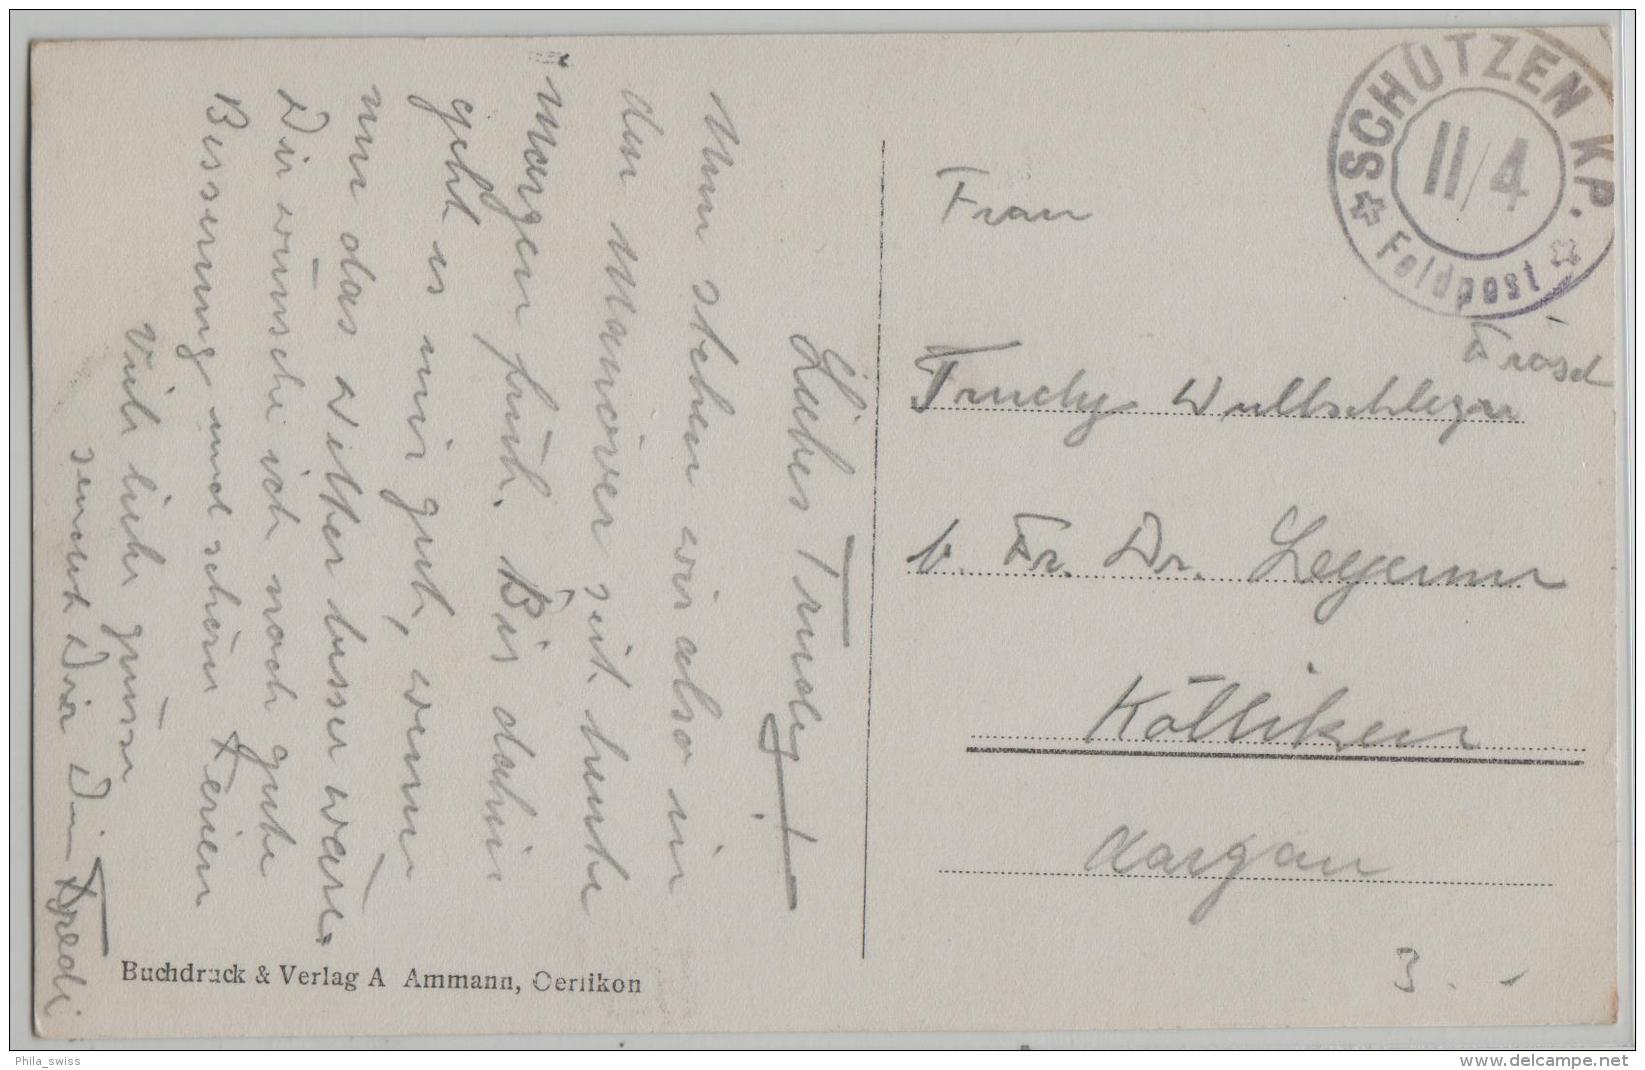 Liebes Trudy!
Nun stehen wir also in
den Manöver seit heute
morgen früh. Bis dahin
geht es mir gut, wenn
nur das Wetter besser wäre.
Dir wünsche ich noch gute
Besserung und schöne Ferien
Viele liebe grüsse
sendet Dir Dein Fredi
Buchdruck & Verlag A. Ammann, Oerlikon
SCHÜTZEN KP.
II/4
* Feldpost *
Frau
Trudy Wullschleger
b. Fr. Dr.
Kölliken
Aargau
3.-
Phila_swiss
www.delcampe.net